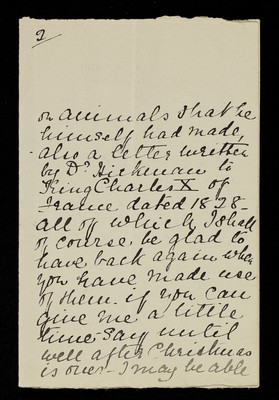 2/
on animals that he
himself had made,
also a letter written
by Dr Hickman to
King Charles X of
France dated 1828 -
all of which I shall
of course, be glad to
have back again when
you have made use
of them. if you can
give me a little
time say until
well after Christmas
is over - I may be able